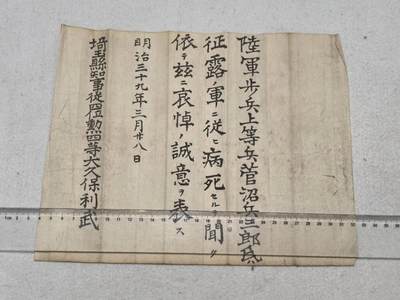 陸軍歩兵上等兵菅沼兵三郎氏
征露ノ軍ニ従ヒ病死セルヲ聞ク
依テ玆ニ哀悼ノ誠意ヲ表ス
明治三十九年三月廿八日
埼玉縣知事従四位勲四等大久保利武